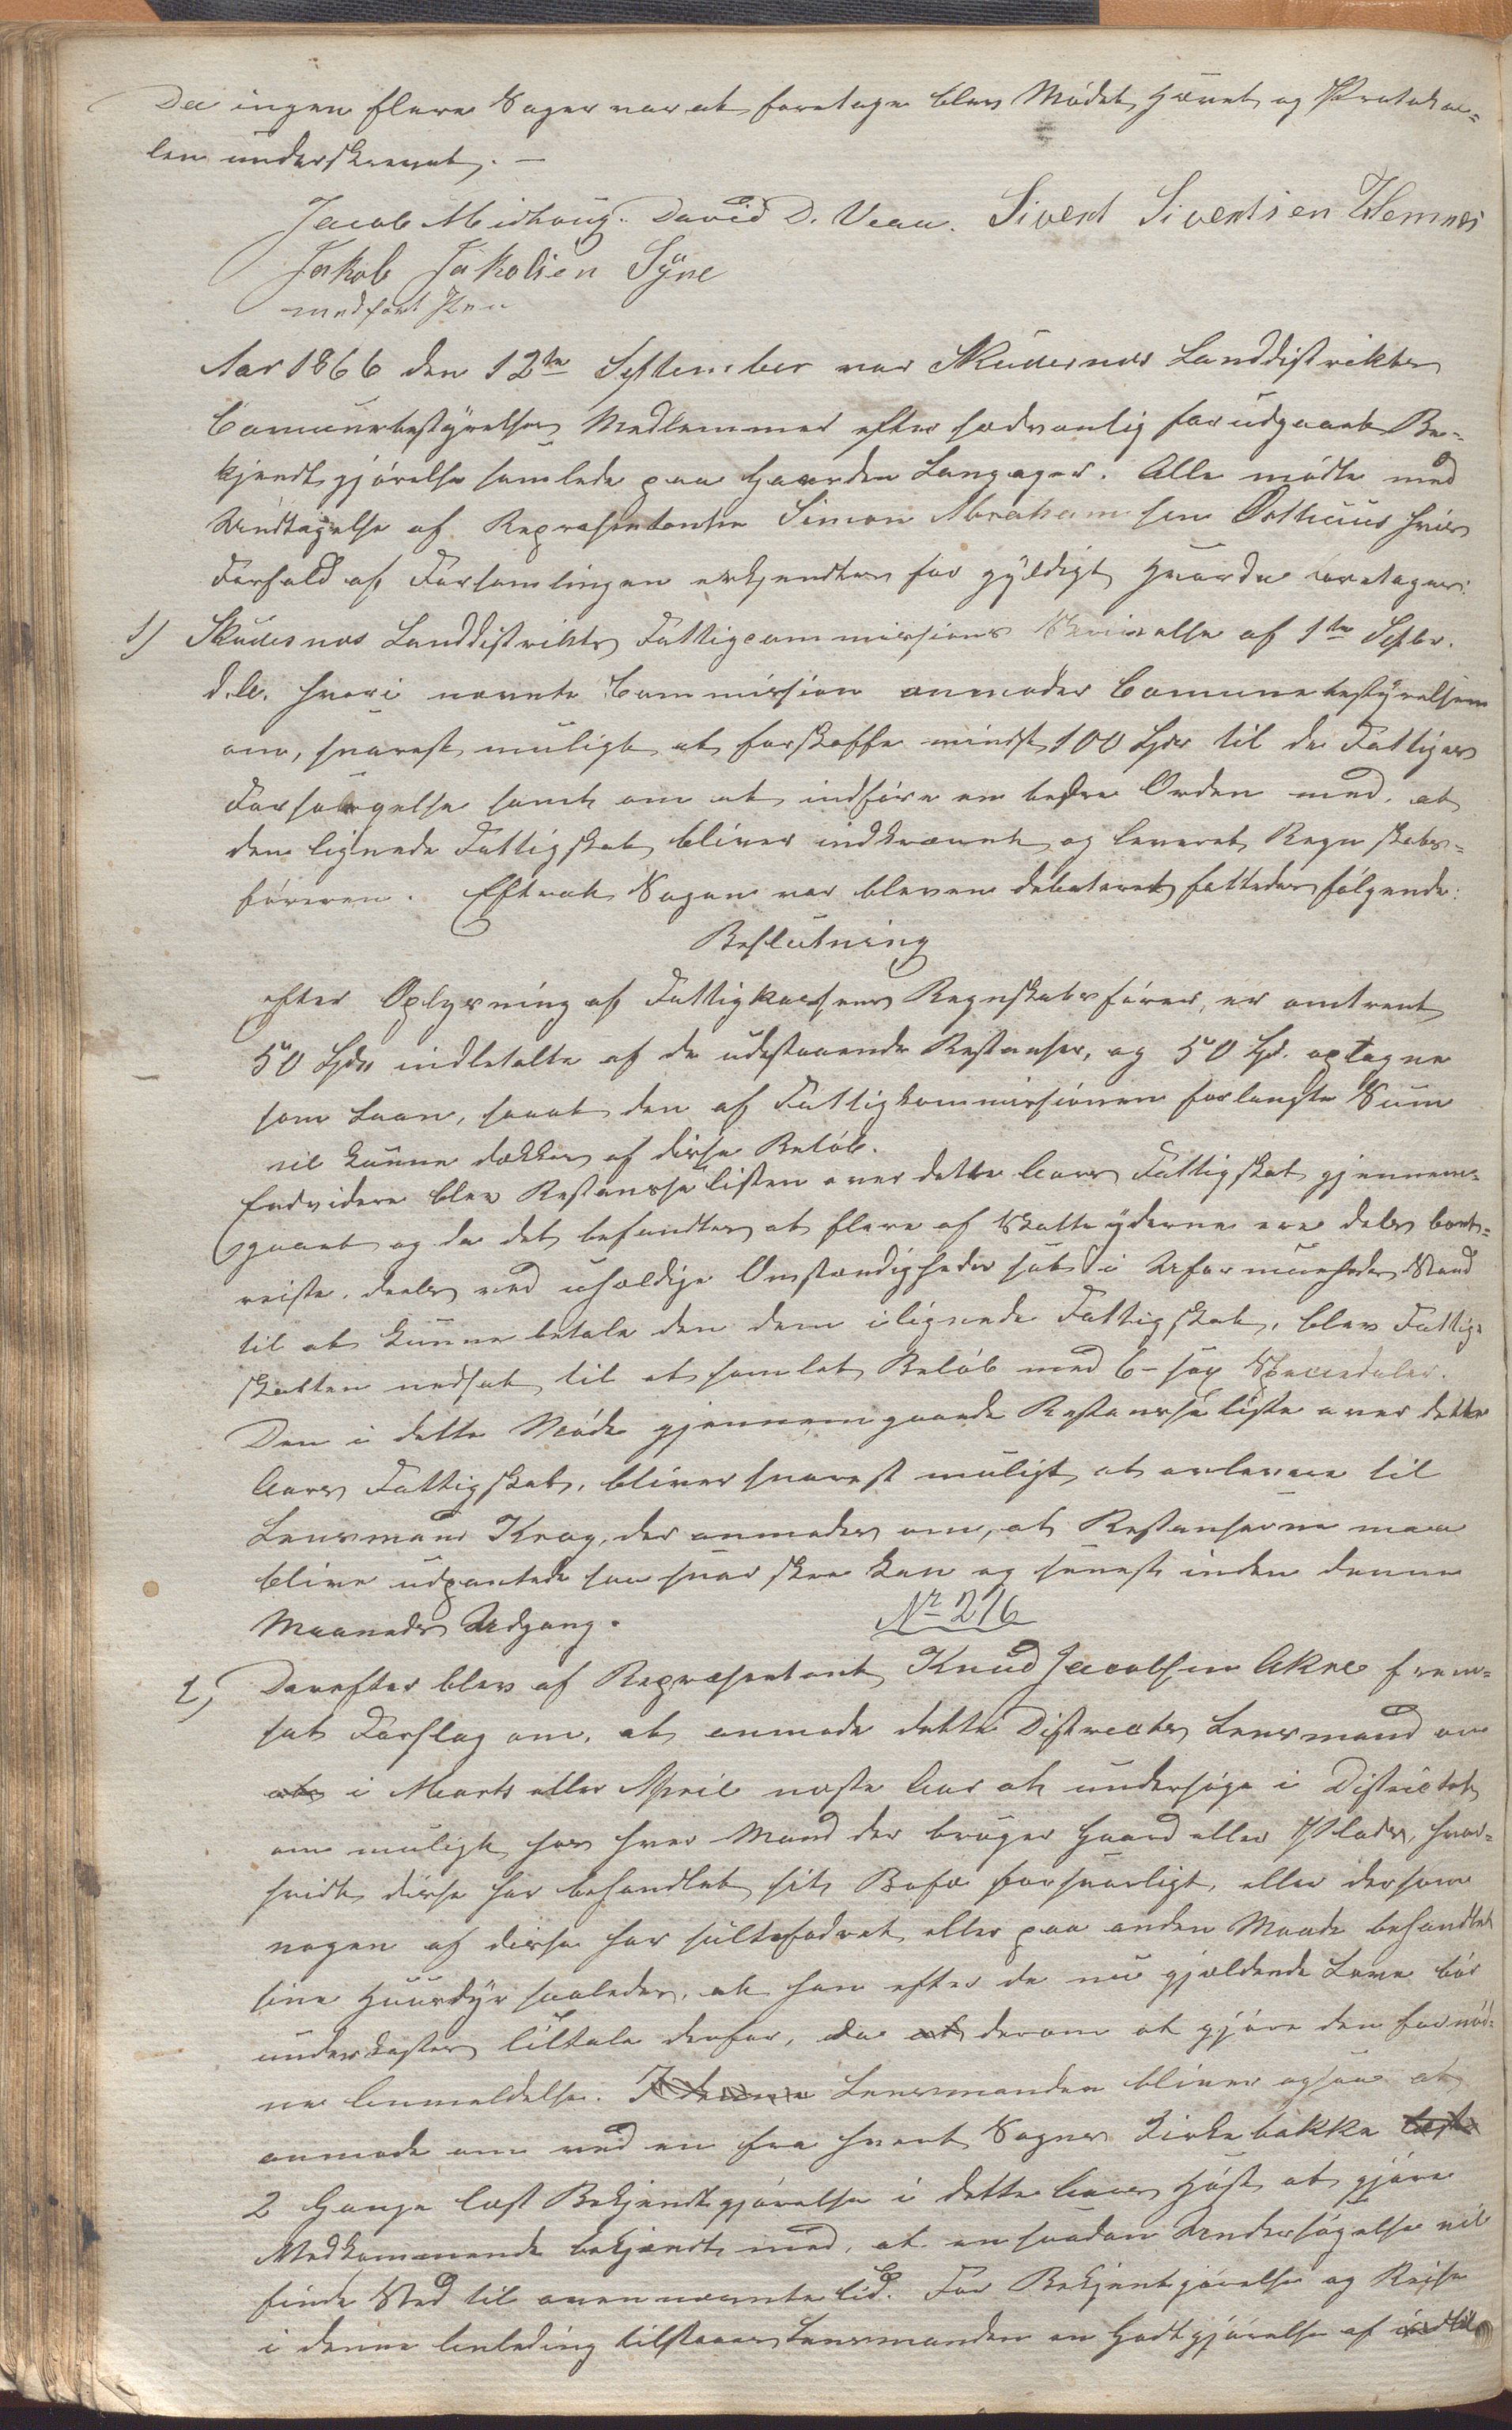 Da ingen flere Sager var at foretage blev Mødet hævet og Protokol-
len underskrevet. —
Jacob Midhoug. David D. Veaa. Sivert Sivertsen Hemnes
Jakob Jakobsen Syre
med ført Pen
Aar 1866 den 12te September var Skudesnes Landdistrikts
Comunebestyrelses Medlemmer efter sædvanlig forudgaaet Be-
kjendtgjørelse samlede paa Gaarden Langager. Alle mødte med
Undtagelse af Repræsentanten Simon Abrahamsen Østhuus hvis
Forfald af Forsamlingen erkjendtes for gyldigt. Hvorda foretages:
1) Skudesnes Landdistrikts Fattigcommissions Skrivelse af 1te Septbr.
d.A. hvori nævnte Commission anmoder Comunebestyrelsen
om, snarest muligt at forskaffe mindst 100 Spdr til de Fattiges
Forsørgelse samt om at indføre en bedre Orden med, at
den lignede Fattigskat bliver indkrævet og leveret Regnskabs-
føreren. Efterat Sagen var bleven debateret fattedes følgende:
Beslutning
efter Oplysning af Fattigkassens Regnskabsfører, er omtrent
50 Spdr indbetalte af de udestaaende Restanser, og 50 Spd. optagne
som Laan, saaat den af Fattigkommissionen forlangte Sum
vil kunne dækkes af disse Beløb.
Endvidere blev Restanselisten over dette Aars Fattigskat gjennem-
gaaet og da det befandtes at flere af Skatteyderne ere dels bort-
reiste, deels ved uheldige Omstændigheder sat i Uformuenheds Stand
til at kunne betale den dem ilignede Fattigskat, blev Fattig-
skatten nedsat til et samlet Beløb med 6 – sex Speciedaler.
Den i dette Møde gjennemgaaede Restanseliste over dette
Aars Fattigskat, bliver snarest muligt at avlevere til
Lensmand Krag, der anmodes om, at Restanserne maa
blive udpantede saa snar skee kan og senest inden denne
Maaneds Udgang.
No 216
2) Derefter blev af Repræsentant Knud Jacobsen Akre frem-
sat Forslag om, at anmode dette Distrects Lensmand om
at i Marts eller April næste Aar at undersøge i Districtet
om muligt hos hver Mand der bruger Gaard eller Plads, hvor-
vidt disse har behandlet sit Bofæ forsvarligt, eller dersom
nogen af disse har sultefodret eller paa anden Maade behandlet
sine Huusdyr saaledes, at han efter de nu gjældende Love bør
underkastes Tiltale derfor, da at derom at gjøre den fornød-
ne Anmeldelse. I denne Lensmanden bliver ogsaa at
anmode om ved en fra hvert Sogns Kirkebakke læst
2 Gange læst Bekjendtgjørelse i dette Aars Høst at gjøre
Vedkommende bekjendt med, at en saadan Undersøgelse vil
finde Sted til ovennævnte Tid. For Bekjentgjørelse og Reise
i denne Anleding tilstaaes Lensmanden en Godtgjørelse af indtil